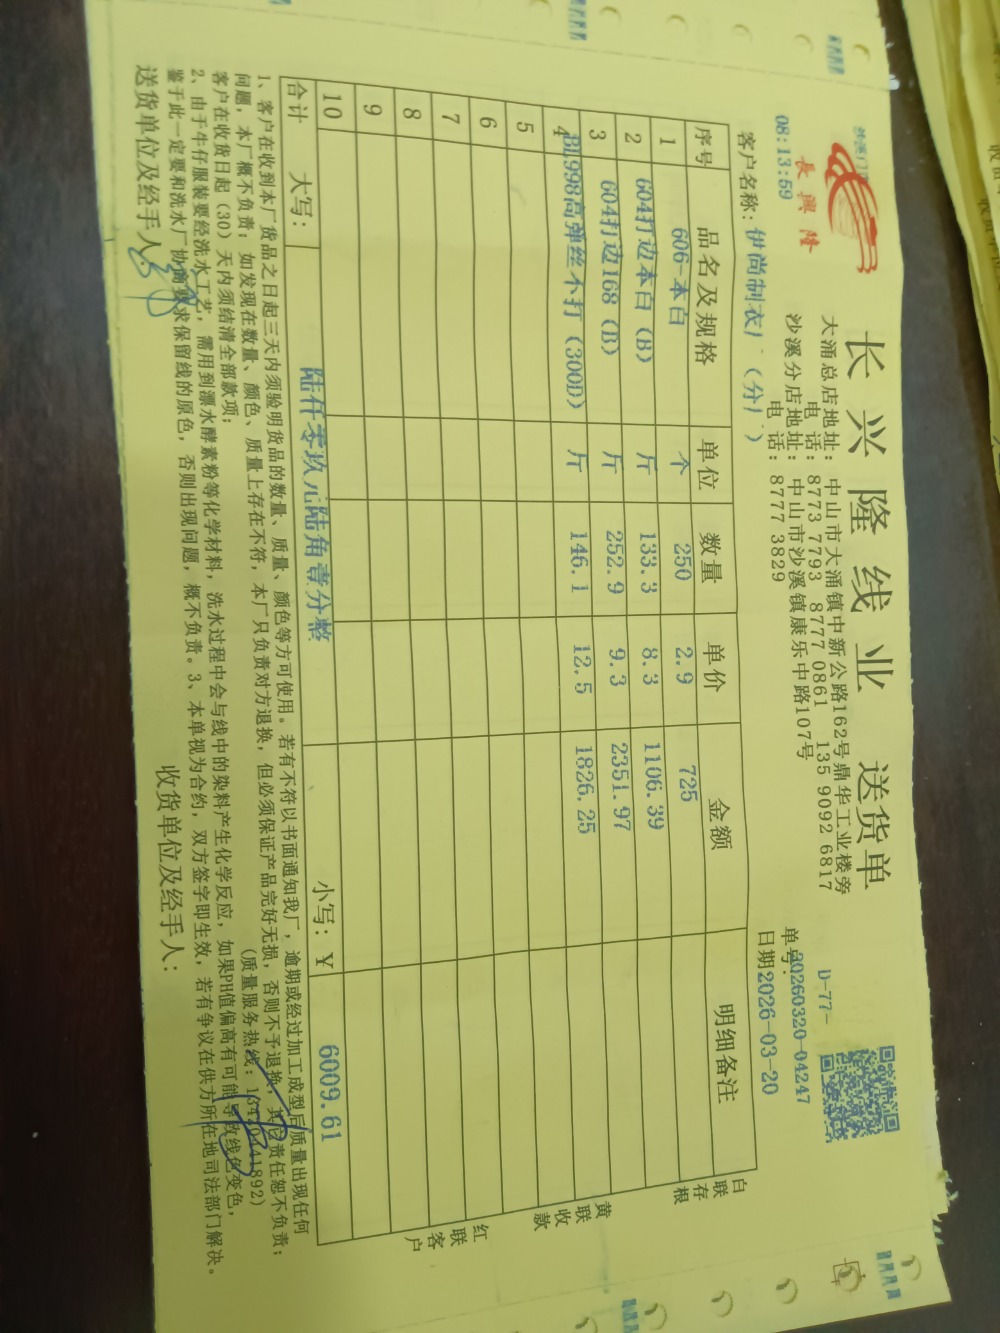 長興隆
长兴隆线业 送货单
大涌总店地址：中山市大涌镇中新公路162号鼎华工业楼旁
电话：8773 7793 8777 0861 135 9092 6817
沙溪分店地址：中山市沙溪镇康乐中路107号
电话：8777 3829
08:13:59
D-77-
单号：20260320-04247
日期2026-03-20
客户名称：伊尚制衣厂（分厂）
序号 品名及规格 单位 数量 单价 金额 明细备注
1 606-本白 个 250 2.9 725
2 604打边本白（B） 斤 133.3 8.3 1106.39
3 604打边168（B） 斤 252.9 9.3 2351.97
4 BL998高弹丝不打（300D） 斤 146.1 12.5 1826.25
5
6
7
8
9
10
合计 大写：陆仟零玖元陆角壹分整 小写：￥ 6009.61
白联存根
黄联收款
红联客户
1、客户在收到本厂货品之日起三天内须验明货品的数量、质量、颜色等方可使用。若有不符以书面通知我厂，逾期或经过加工成型后质量出现任何
问题，本厂概不负责；如发现在数量、颜色、质量上存在不符，本厂只负责对方退换，但必须保证产品完好无损，否则不予退换，其它责任恕不负责；
客户在收货日起（30）天内须结清全部款项；
（质量服务热线：13420441892）
2、由于牛仔服装要经洗水工艺，需用到漂水酵素粉等化学材料，洗水过程中会与线中的染料产生化学反应，如果PH值偏高有可能导致线色变色，
鉴于此一定要和洗水厂协商要求保留线的原色，否则出现问题，概不负责。3、本单视为合约，双方签字即生效，若有争议在供方所在地司法部门解决。
送货单位及经手人：
收货单位及经手人：